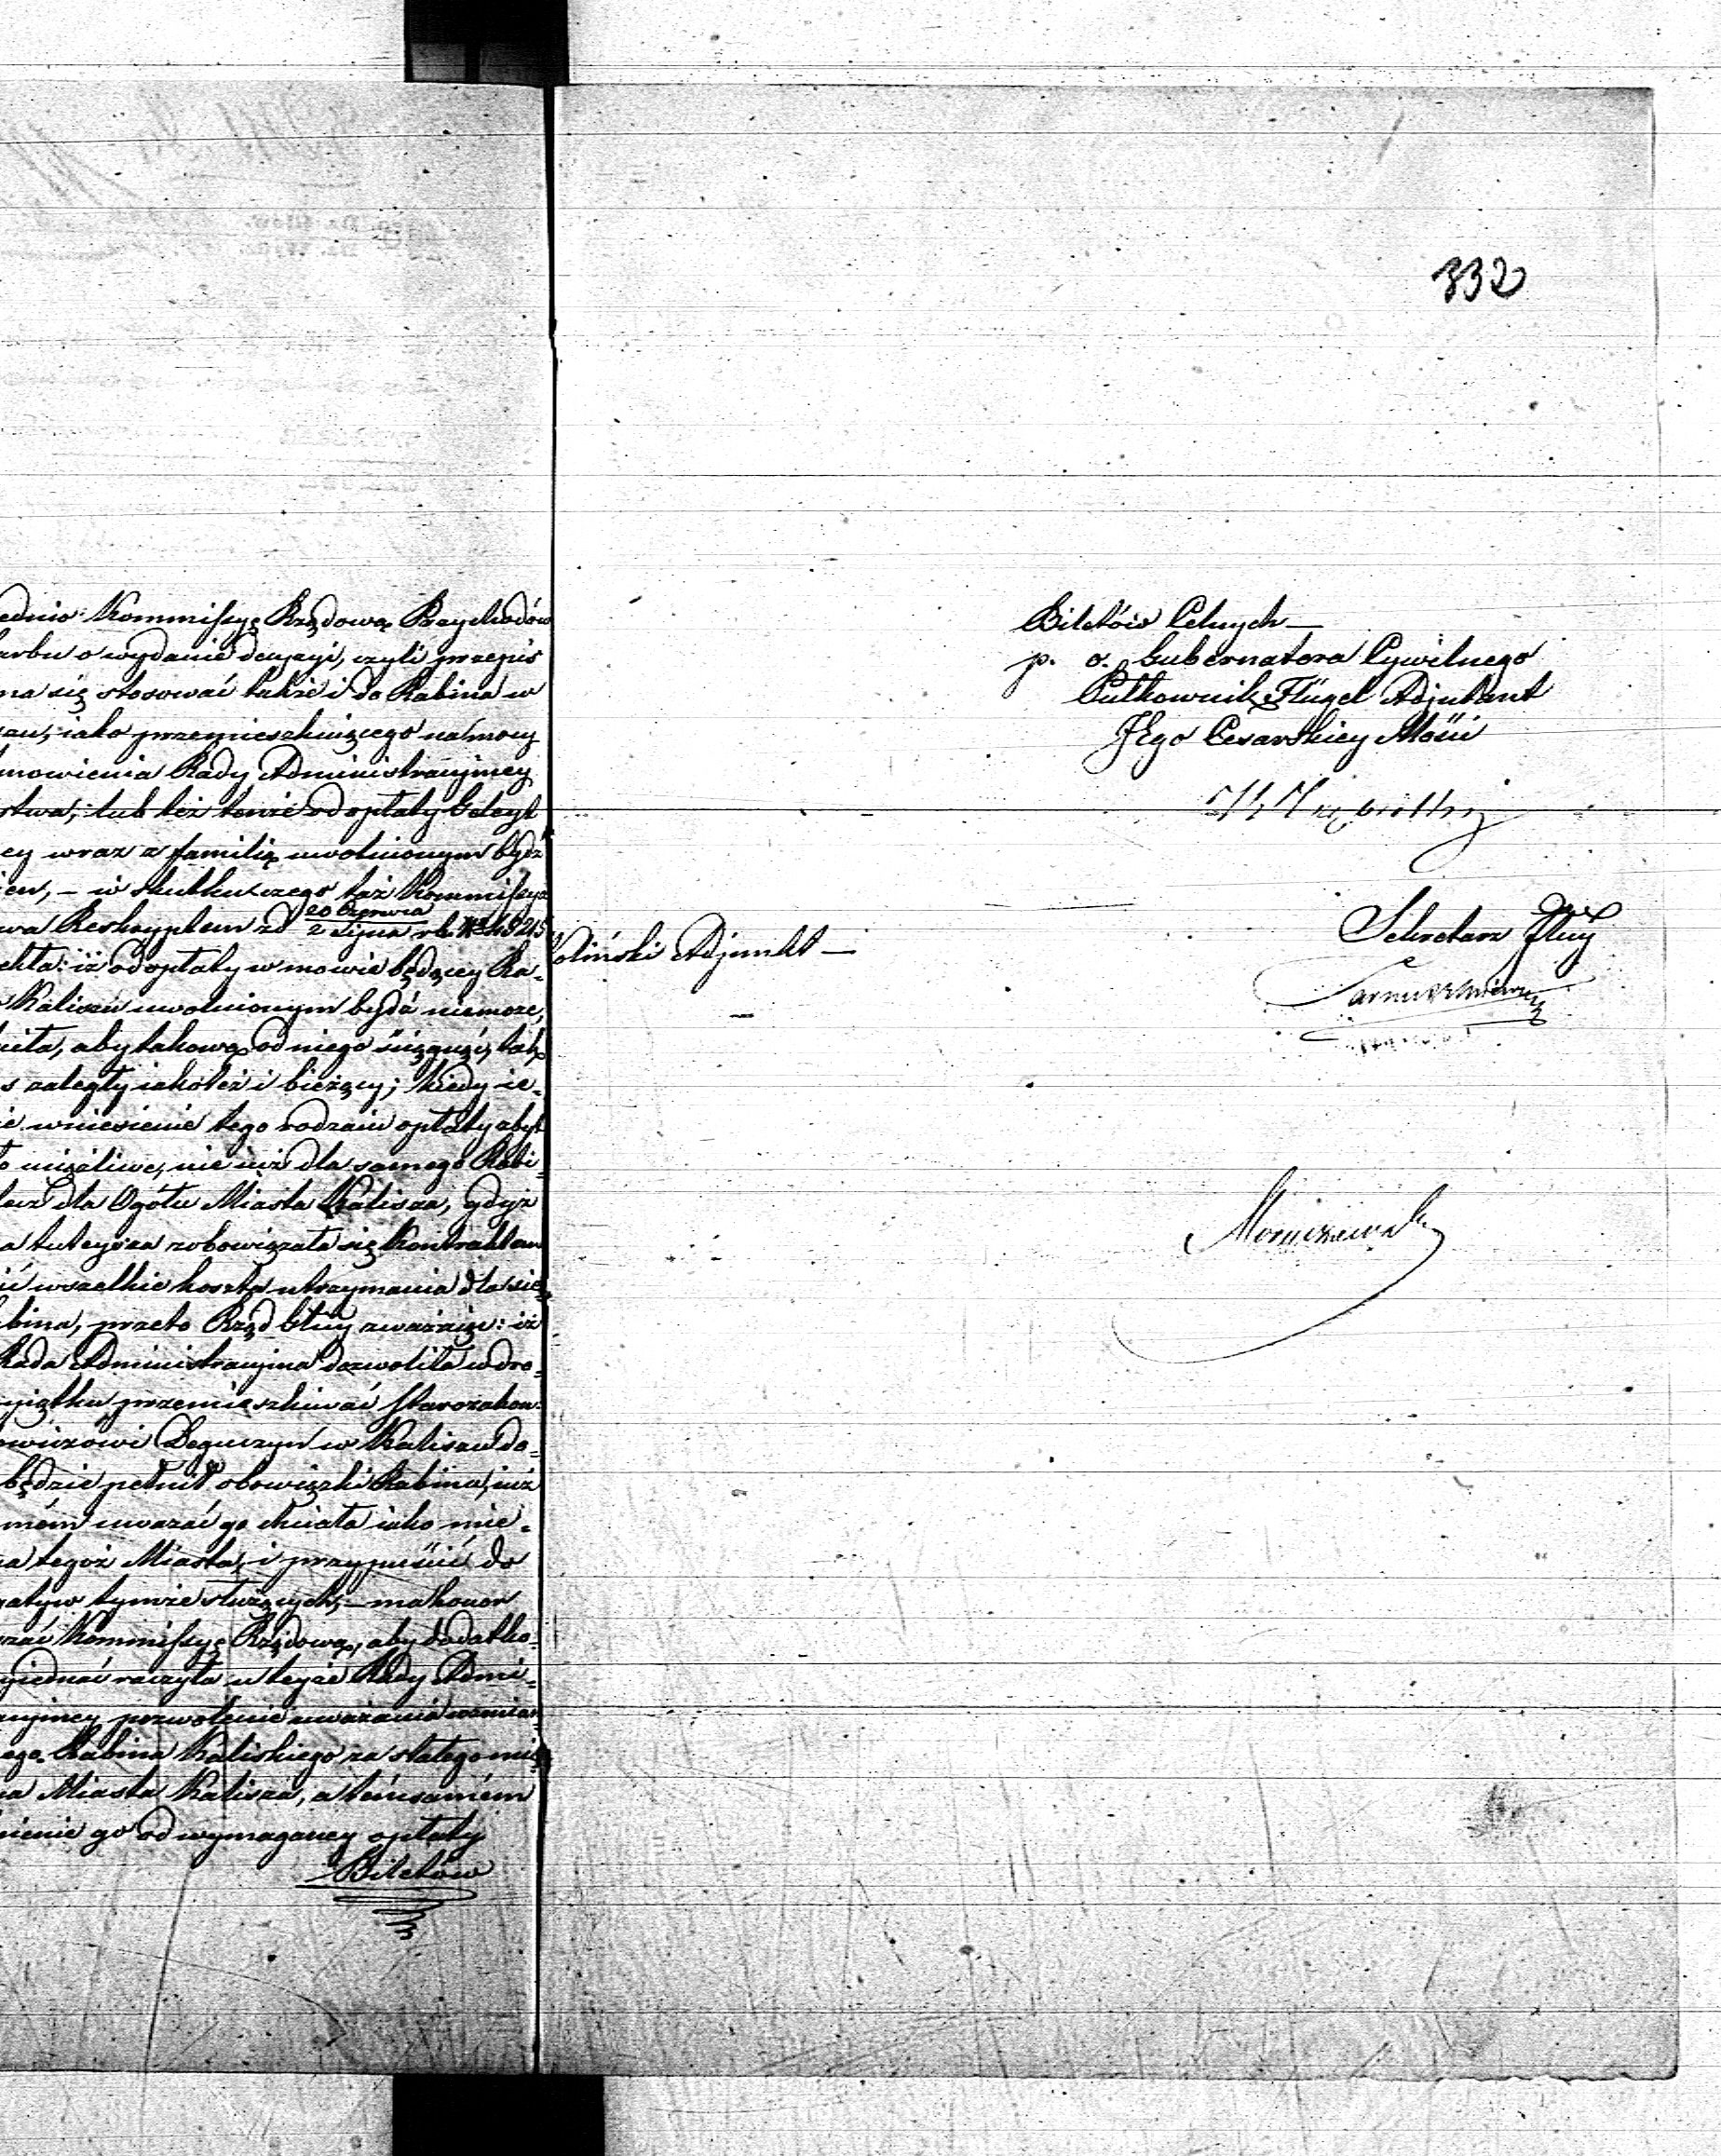 332
ednio Kommissyę Rządową Przychodów
arbu o wydanie decyzyi, czyli przepis
ma się stosować także i do Rabina w
szu, iako przemieszkuiącego na mocy
mowienia Rady Administracyiney
stwa, lub też tenże od opłaty Geleyt
cy wraz z familią uwolnionym bydź
ien, – w skutku czego taż Kommissya
wa Reskryptem z d 20 Czerwca / 2 Lipca rb. N 48245
ekła: iż od opłaty w mowie będącey Ra-
Kalisza uwolnionym bydź niemoże,
ciła, aby takową od niego ściągnąć, tak
s zaległy iakoteż i bieżący; kiedy ie-
ie wniesienie tego rodzaiu opłaty abyt
o uciążliwe, nie iuż dla samego Rabi-
lecz dla Ogółu Miasta Kalisza, gdyż
a tuteysza zobowiązała się kontraktem
ić wszelkie koszta utrzymania dla sie-
bina, przeto Rząd Gbny zważaiąc: iż
Rada Administracyina dozwoliła w dro-
yiątku przemieszkiwać Starozakon:
owiczowi Deguczyn w Kaliszu do-
będzie pełnił obowiązki Rabina, iuż
mém uważać go chciała iako mie-
a tegoż Miasta, i przypuścić do
gatyw tymże służących, – ma honor
szać Kommissyę Rządową, aby dodatko-
yiednać raczyła u teyże Rady Admi-
cyiney pozwolenie uważania wzmian-
ego Rabina Kaliskiego za stałego mie
a Miasta Kalisza, a témsamém
nienie go od wymaganey opłaty
Biletów
Biletów Celnych –
p. o. Gubernatora Cywilnego
Pułkownik Flügel Adjutant
JEgo Cesarskiey Mości
Sekretarz Jlny
oliński Adjunkt –